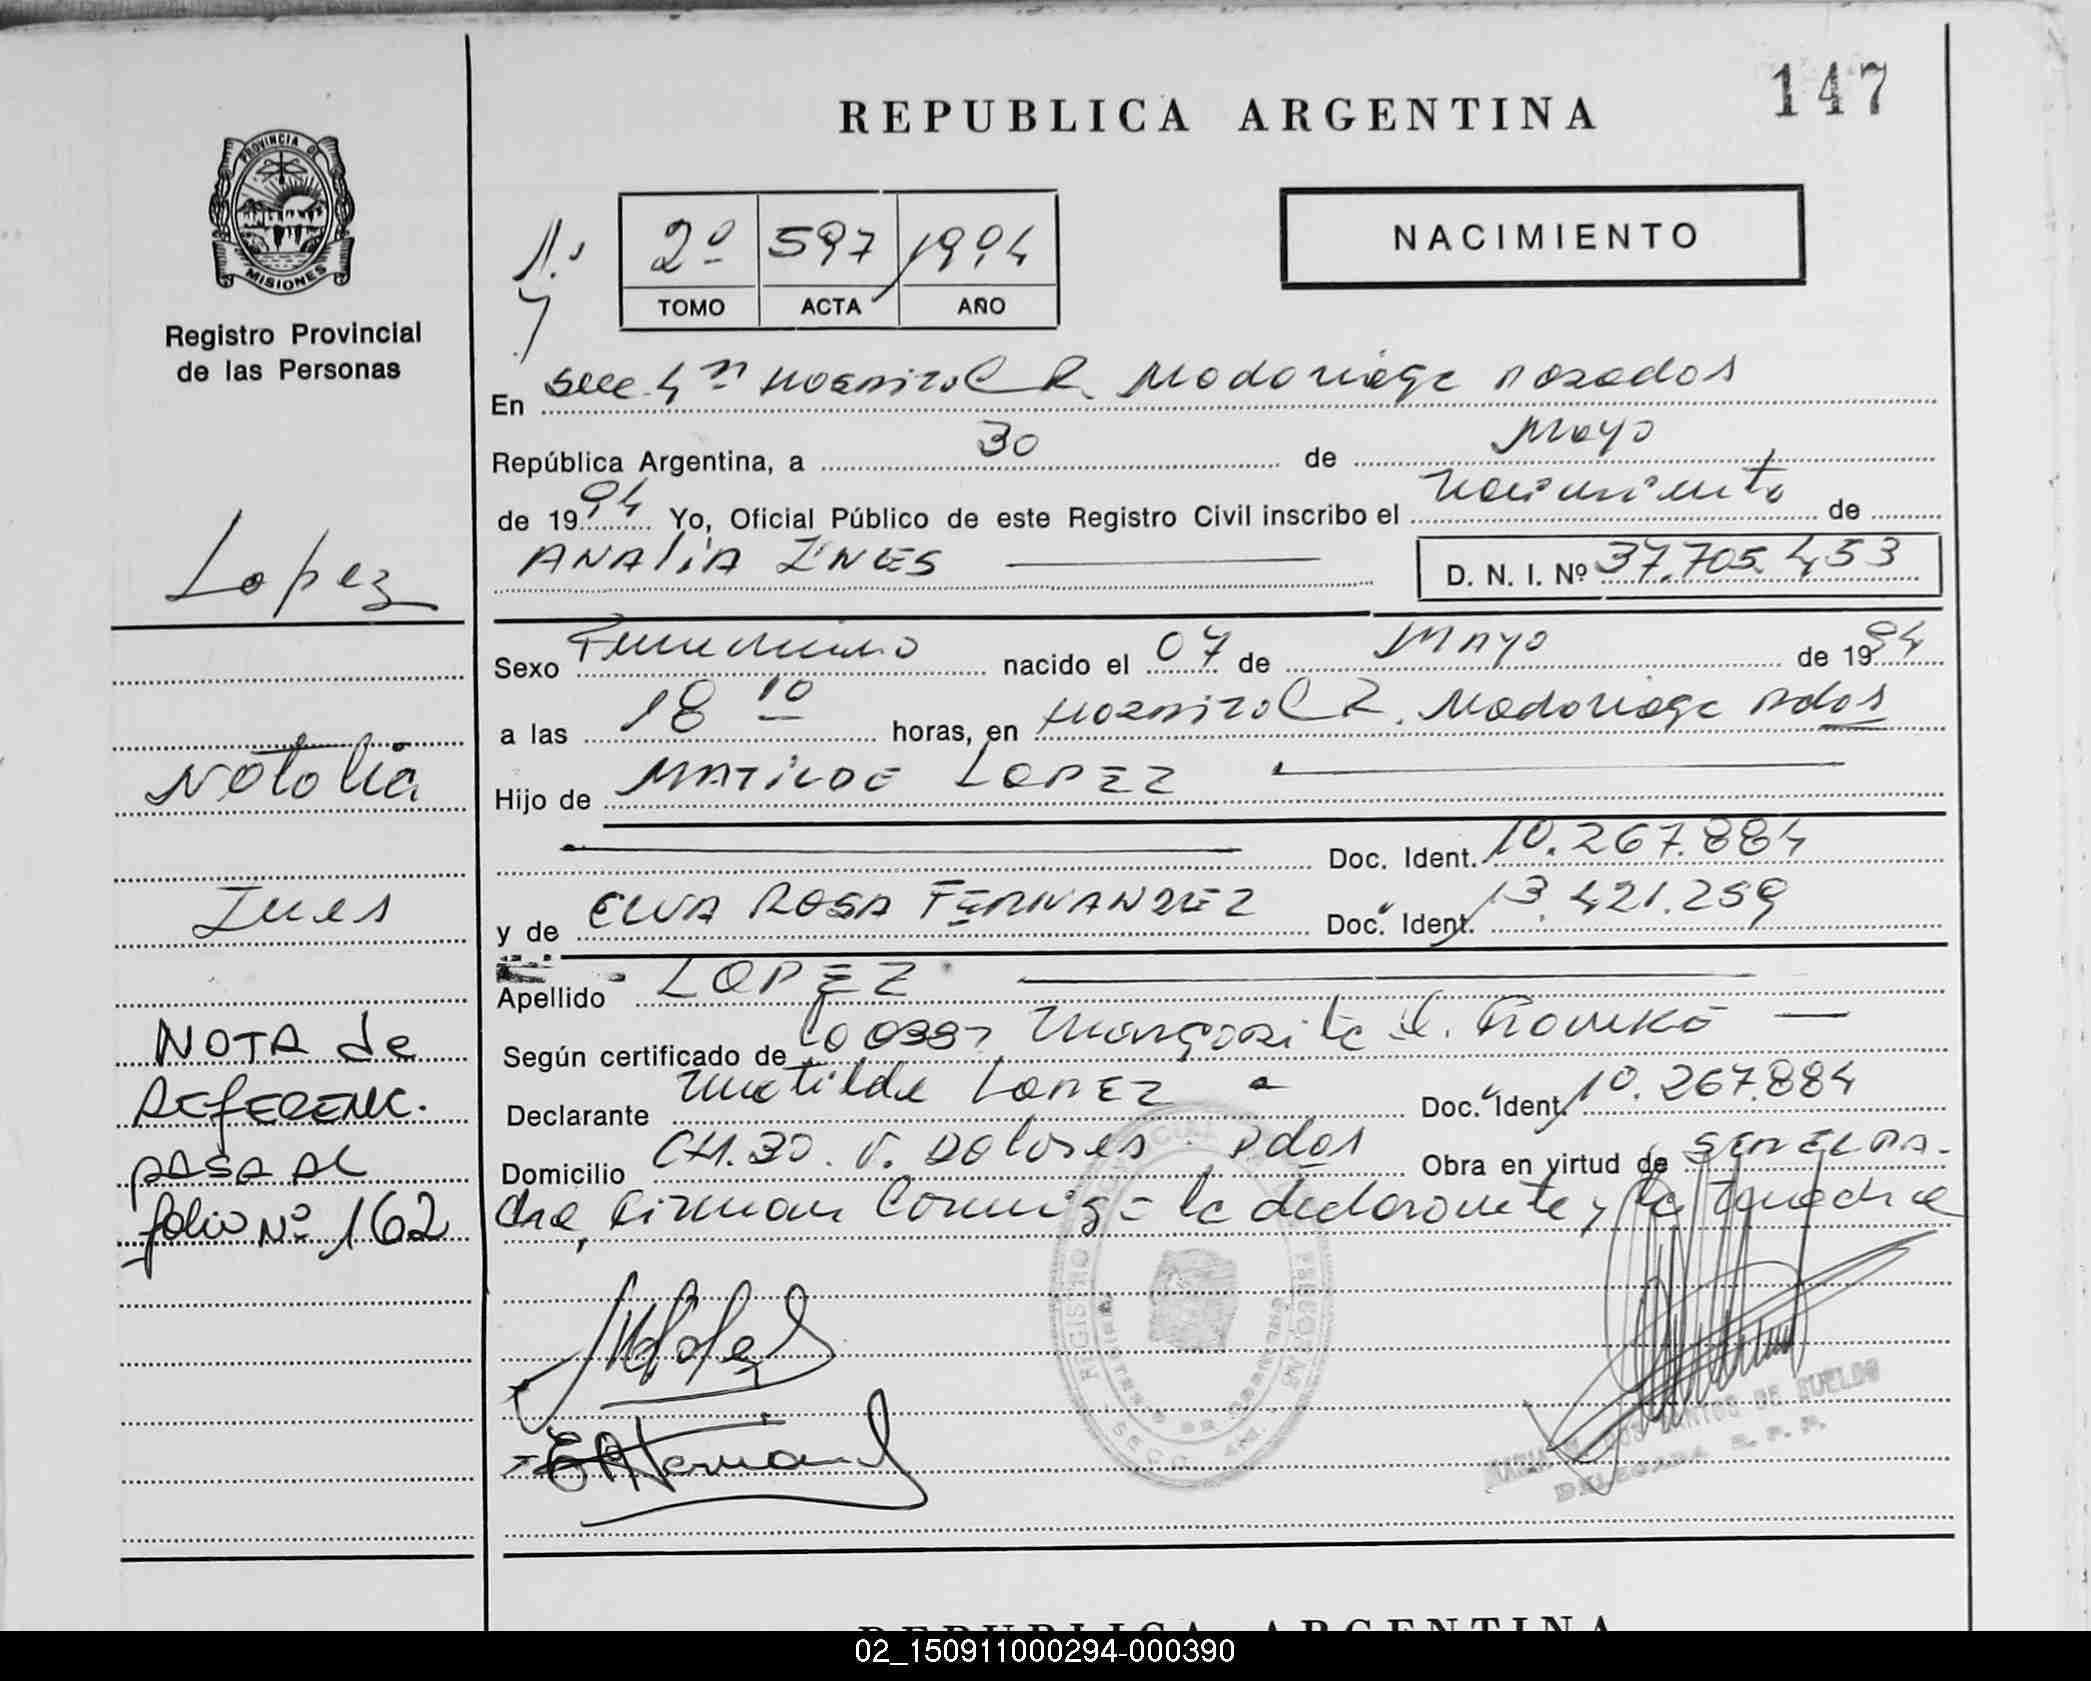 147
REPUBLICA ARGENTINA
PROVINCIA DE
MISIONES
Registro Provincial
de las Personas
1º
2º 597 1994
TOMO ACTA AÑO
NACIMIENTO
En Secc 4ta Hospital R. Madariaga Posadas
República Argentina, a 30 de Mayo
de 1994 Yo, Oficial Público de este Registro Civil inscribo el Nacimiento de
ANALIA INES
D. N. I. Nº 37.705.453
Lopez
Sexo Femenino nacido el 07 de MAYO de 1994
a las 18 10 horas, en Hospital R. Madariaga Pdas
Natalia
Hijo de MATILDE LOPEZ
Doc. Ident. 10.267.884
Ines
y de ELVA ROSA FERNANDEZ Doc. Ident. 13.421.259
Apellido LOPEZ
NOTA de
REFERENC.
PASA AL
folio Nº 162
Según certificado de Margarita
Declarante Matilde LOPEZ Doc. Ident. 10.267.884
Domicilio CH. 30. V. Dolores. Pdas Obra en virtud de SER EL PA-
dre, Firman Conmigo la declarante y la madre
DELEGADA R. P. P.
REPUBLICA ARGENTINA
02_150911000294-000390